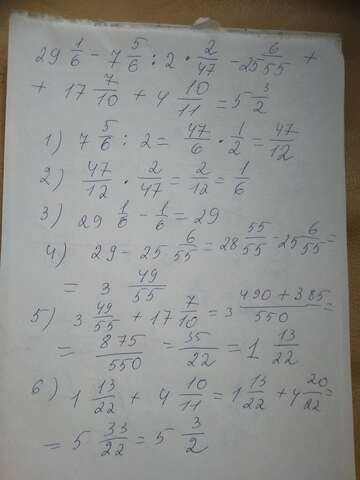 29 1/6 - 7 5/6 : 2 · 2/47 - 25 6/55 +
+ 17 7/10 + 4 10/11 = 5 3/2
1) 7 5/6 : 2 = 47/6 · 1/2 = 47/12
2) 47/12 · 2/47 = 2/12 = 1/6
3) 29 1/6 - 1/6 = 29
4) 29 - 25 6/55 = 28 55/55 - 25 6/55 =
= 3 49/55
5) 3 49/55 + 17 7/10 = 3 490 + 385/550 =
= 875/550 = 35/22 = 1 13/22
6) 1 13/22 + 4 10/11 = 1 13/22 + 4 20/22 =
= 5 33/22 = 5 3/2